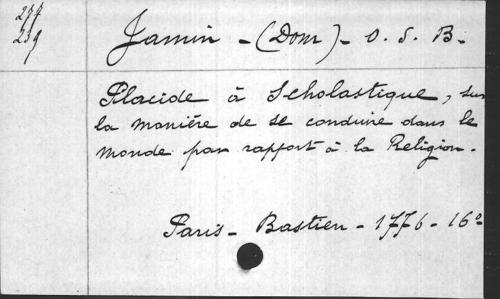 277
239
Jamin - (Dom) - O. S. B -
Placide à Scholastique, sur
la manière de se conduire dans le
monde par rapport à la Religion.
Paris - Bastien - 1776 - 16°